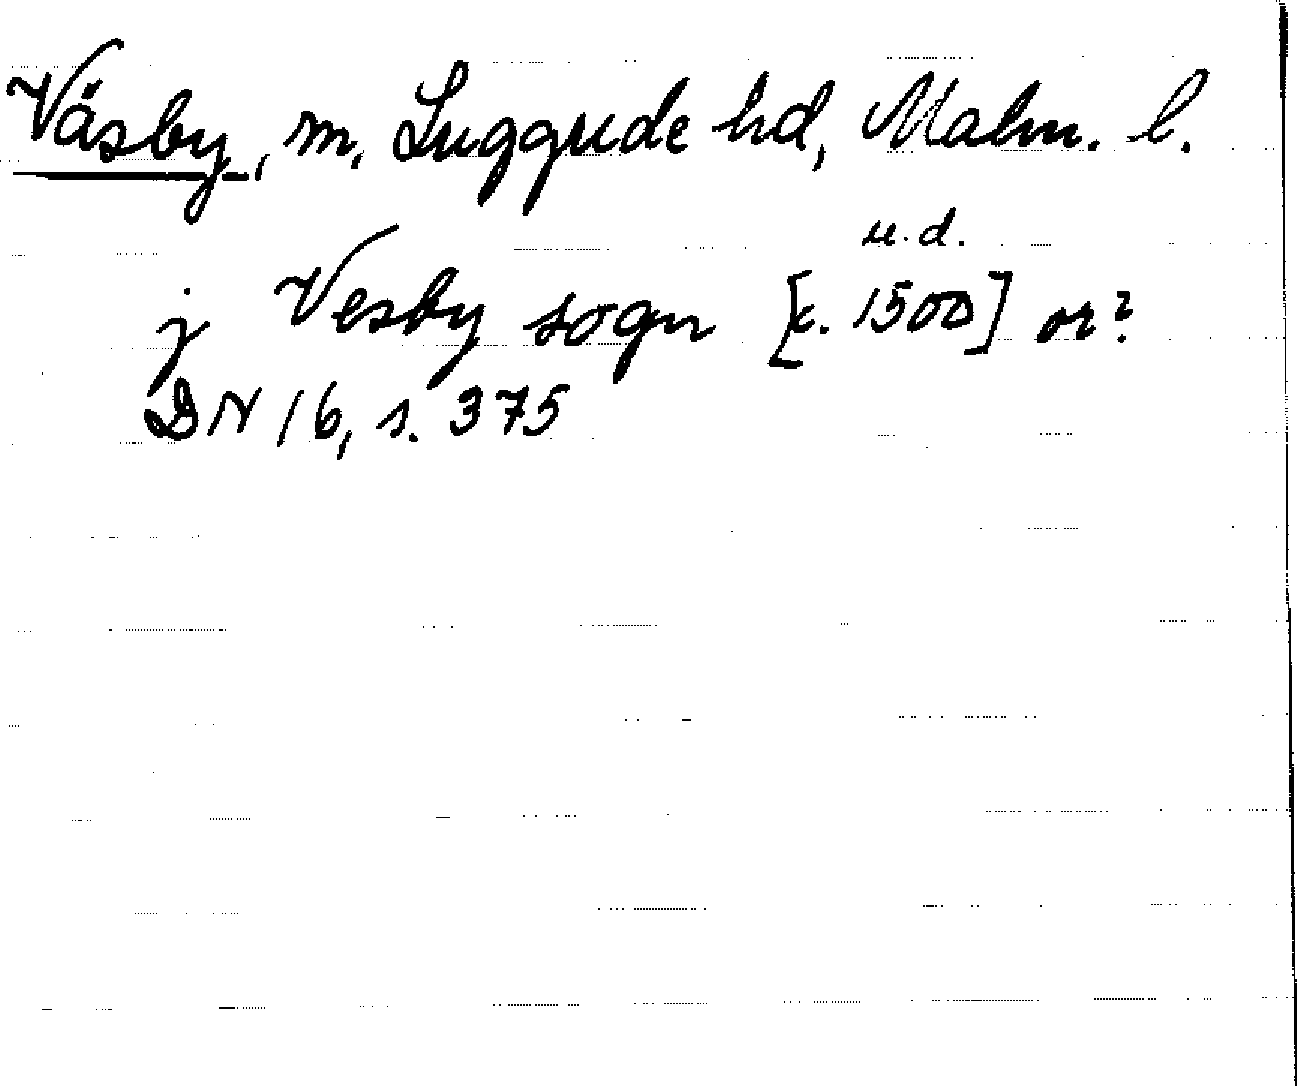 Väsby, m. Luggude hd, Malm. l.
u.d.
j Vesby sogn [c. 1500] or?
DN 16, s. 375